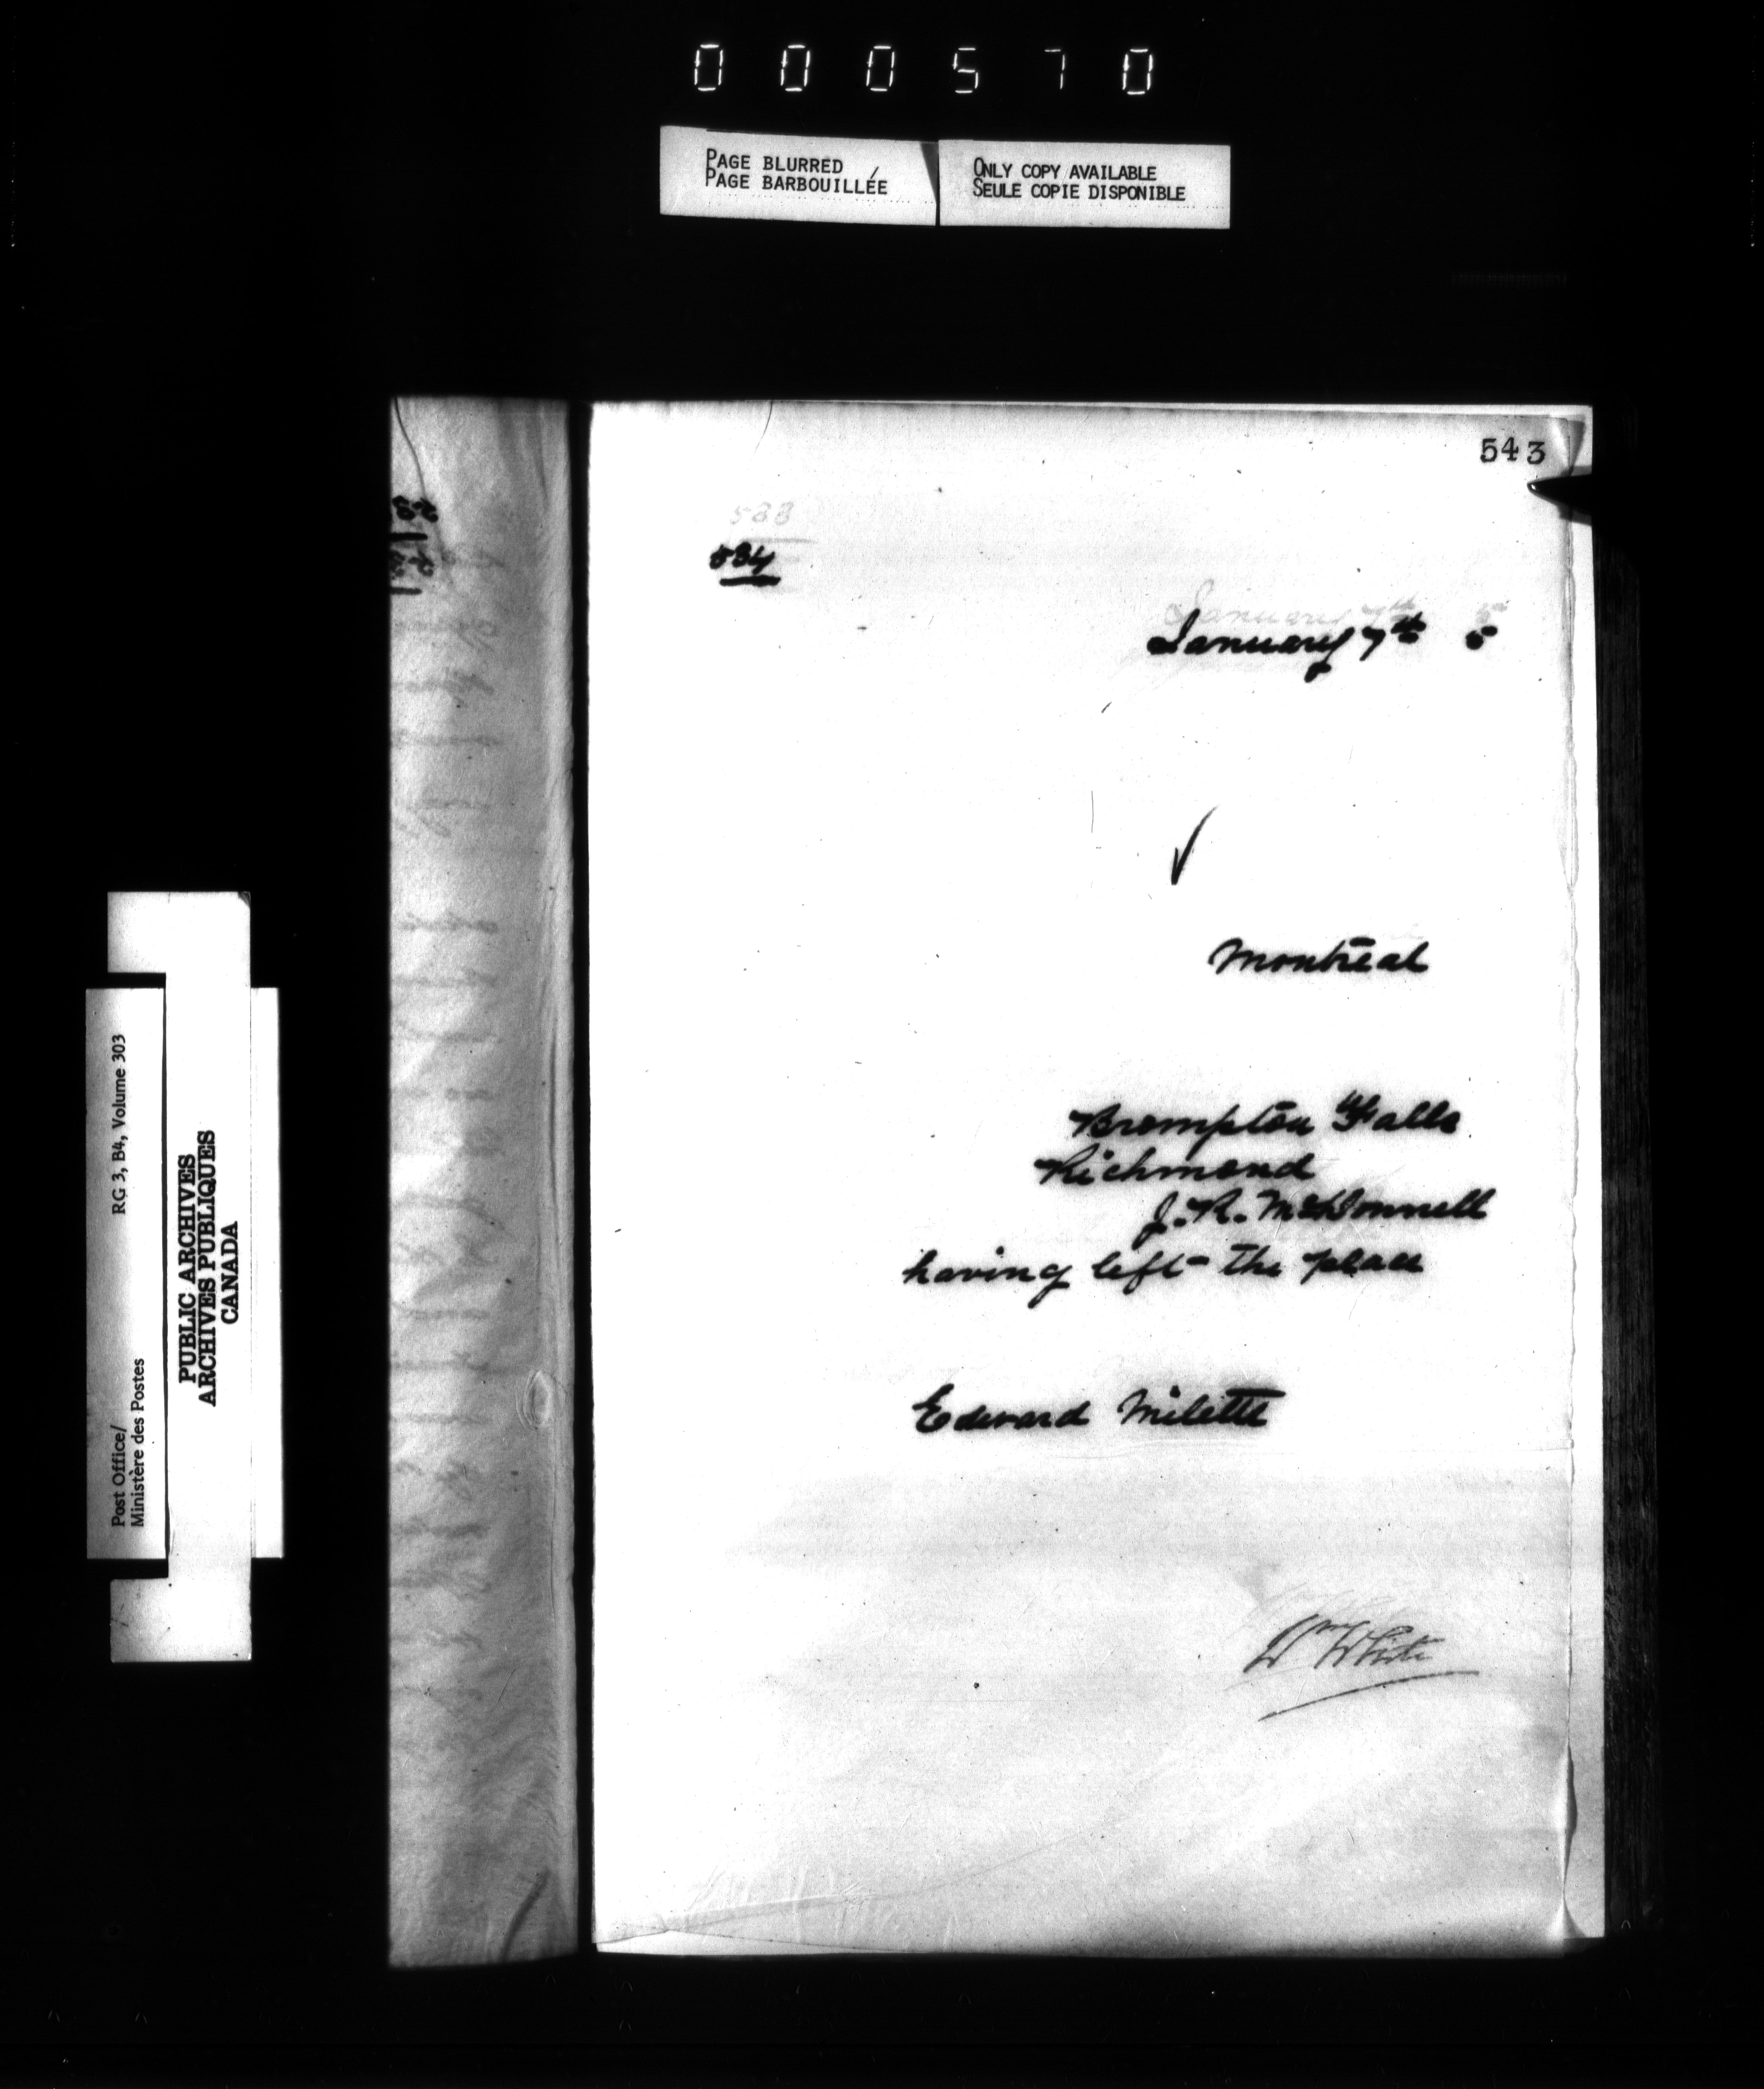 000570
PAGE BLURRED
PAGE BARBOUILLÉE
ONLY COPY AVAILABLE
SEULE COPIE DISPONIBLE
543
533
534
January 7th 5
Montreal
Brompton Falls
Richmond
J. R. McDonnell
having left the place
Edward Milette
Wm White
RG 3, B4, Volume 303
Post Office/
Ministère des Postes
PUBLIC ARCHIVES
ARCHIVES PUBLIQUES
CANADA